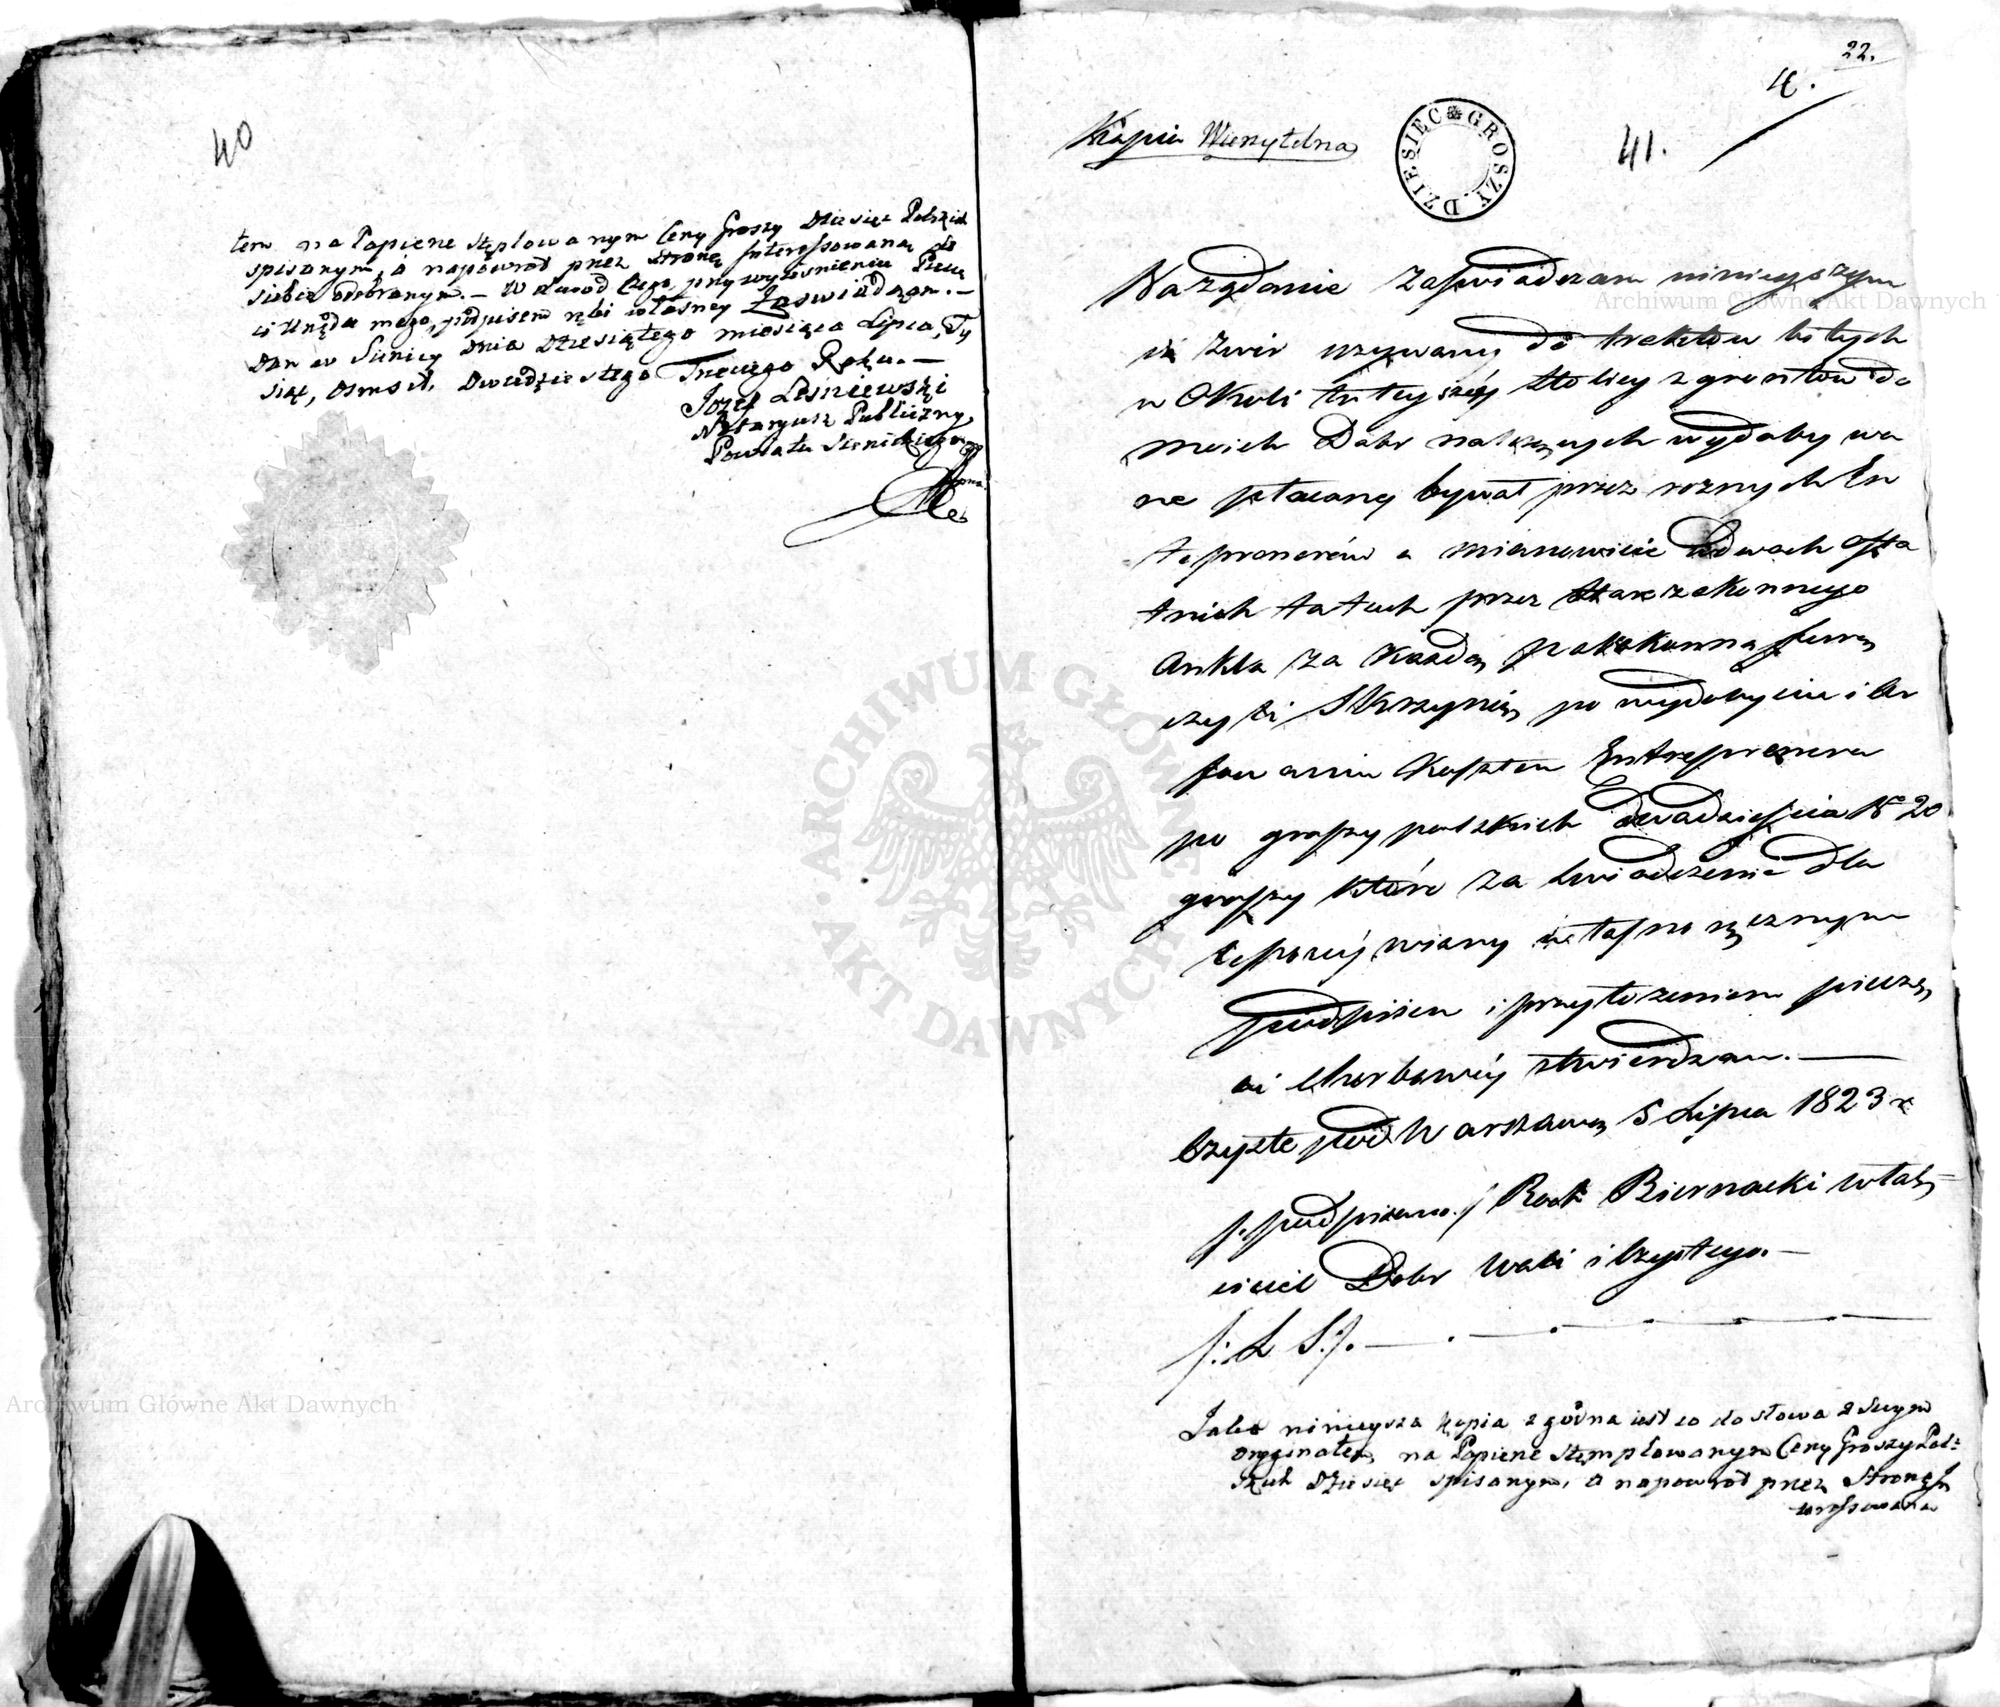 40
tem na Papierze stęplowanym Ceny Groszy Dziesięć Polskich
spisanym, á napowrót przez Stronę Interessowaną do
siebie odebranym. — W dowód czego, przy wyciśnieniu Pieczę
ci Urzędu mego, podpisem ręki własney Zaświadczam. —
Dan w Dnia Dziesiątego miesiąca Lipca, Ty
siąc, Osmset, Dwudziestego Trzeciego Roku. —
Jozef Leśniewski
Notaryusz Publiczny
Powiatu
22.
4.
Kopia Wierzytelna
DZIESIĘC GROSZY
41.
Na żądanie Zaświadczam niniejszym
iż Zwir używany do traktów bitych
w Okoli tuteyszéy Stolicy z gruntów do
moich Dobr należących wydobywa
ne płacony bywał przez roznych En
treprenerów a mianowicie w dwoch osta
tnich latach przez Starozakonnego
za każdą parokonną furę
czyli Skrzynię po wydobyciu i
sowaniu Kosztem Entreprenera
po groszy polskich dwadzieścia No 20
groszy które za świadczenie dla
lepszey wiary własno ręcznym
podpisem i przyłożeniem pieczę
ci cherbowéy stwierdzam. —
Czyste pod Warszawą 5 Lipca 1823 r
/. podpisano. / Roch Biernacki właś=
ciciel Dobr Woli i Czystego. —
/: L S :/. —
Jako ninieysza kopia zgodna iest co do słowa z swym
oryginałem, na Papierze stęmplowanym Ceny Groszy Pol=
skich Dziesięć spisanym, á napowrót przez Stronę In
teressowaną
ARCHIWUM GŁÓWNE AKT DAWNYCH
Archiwum Główne Akt Dawnych
Archiwum Główne Akt Dawnych